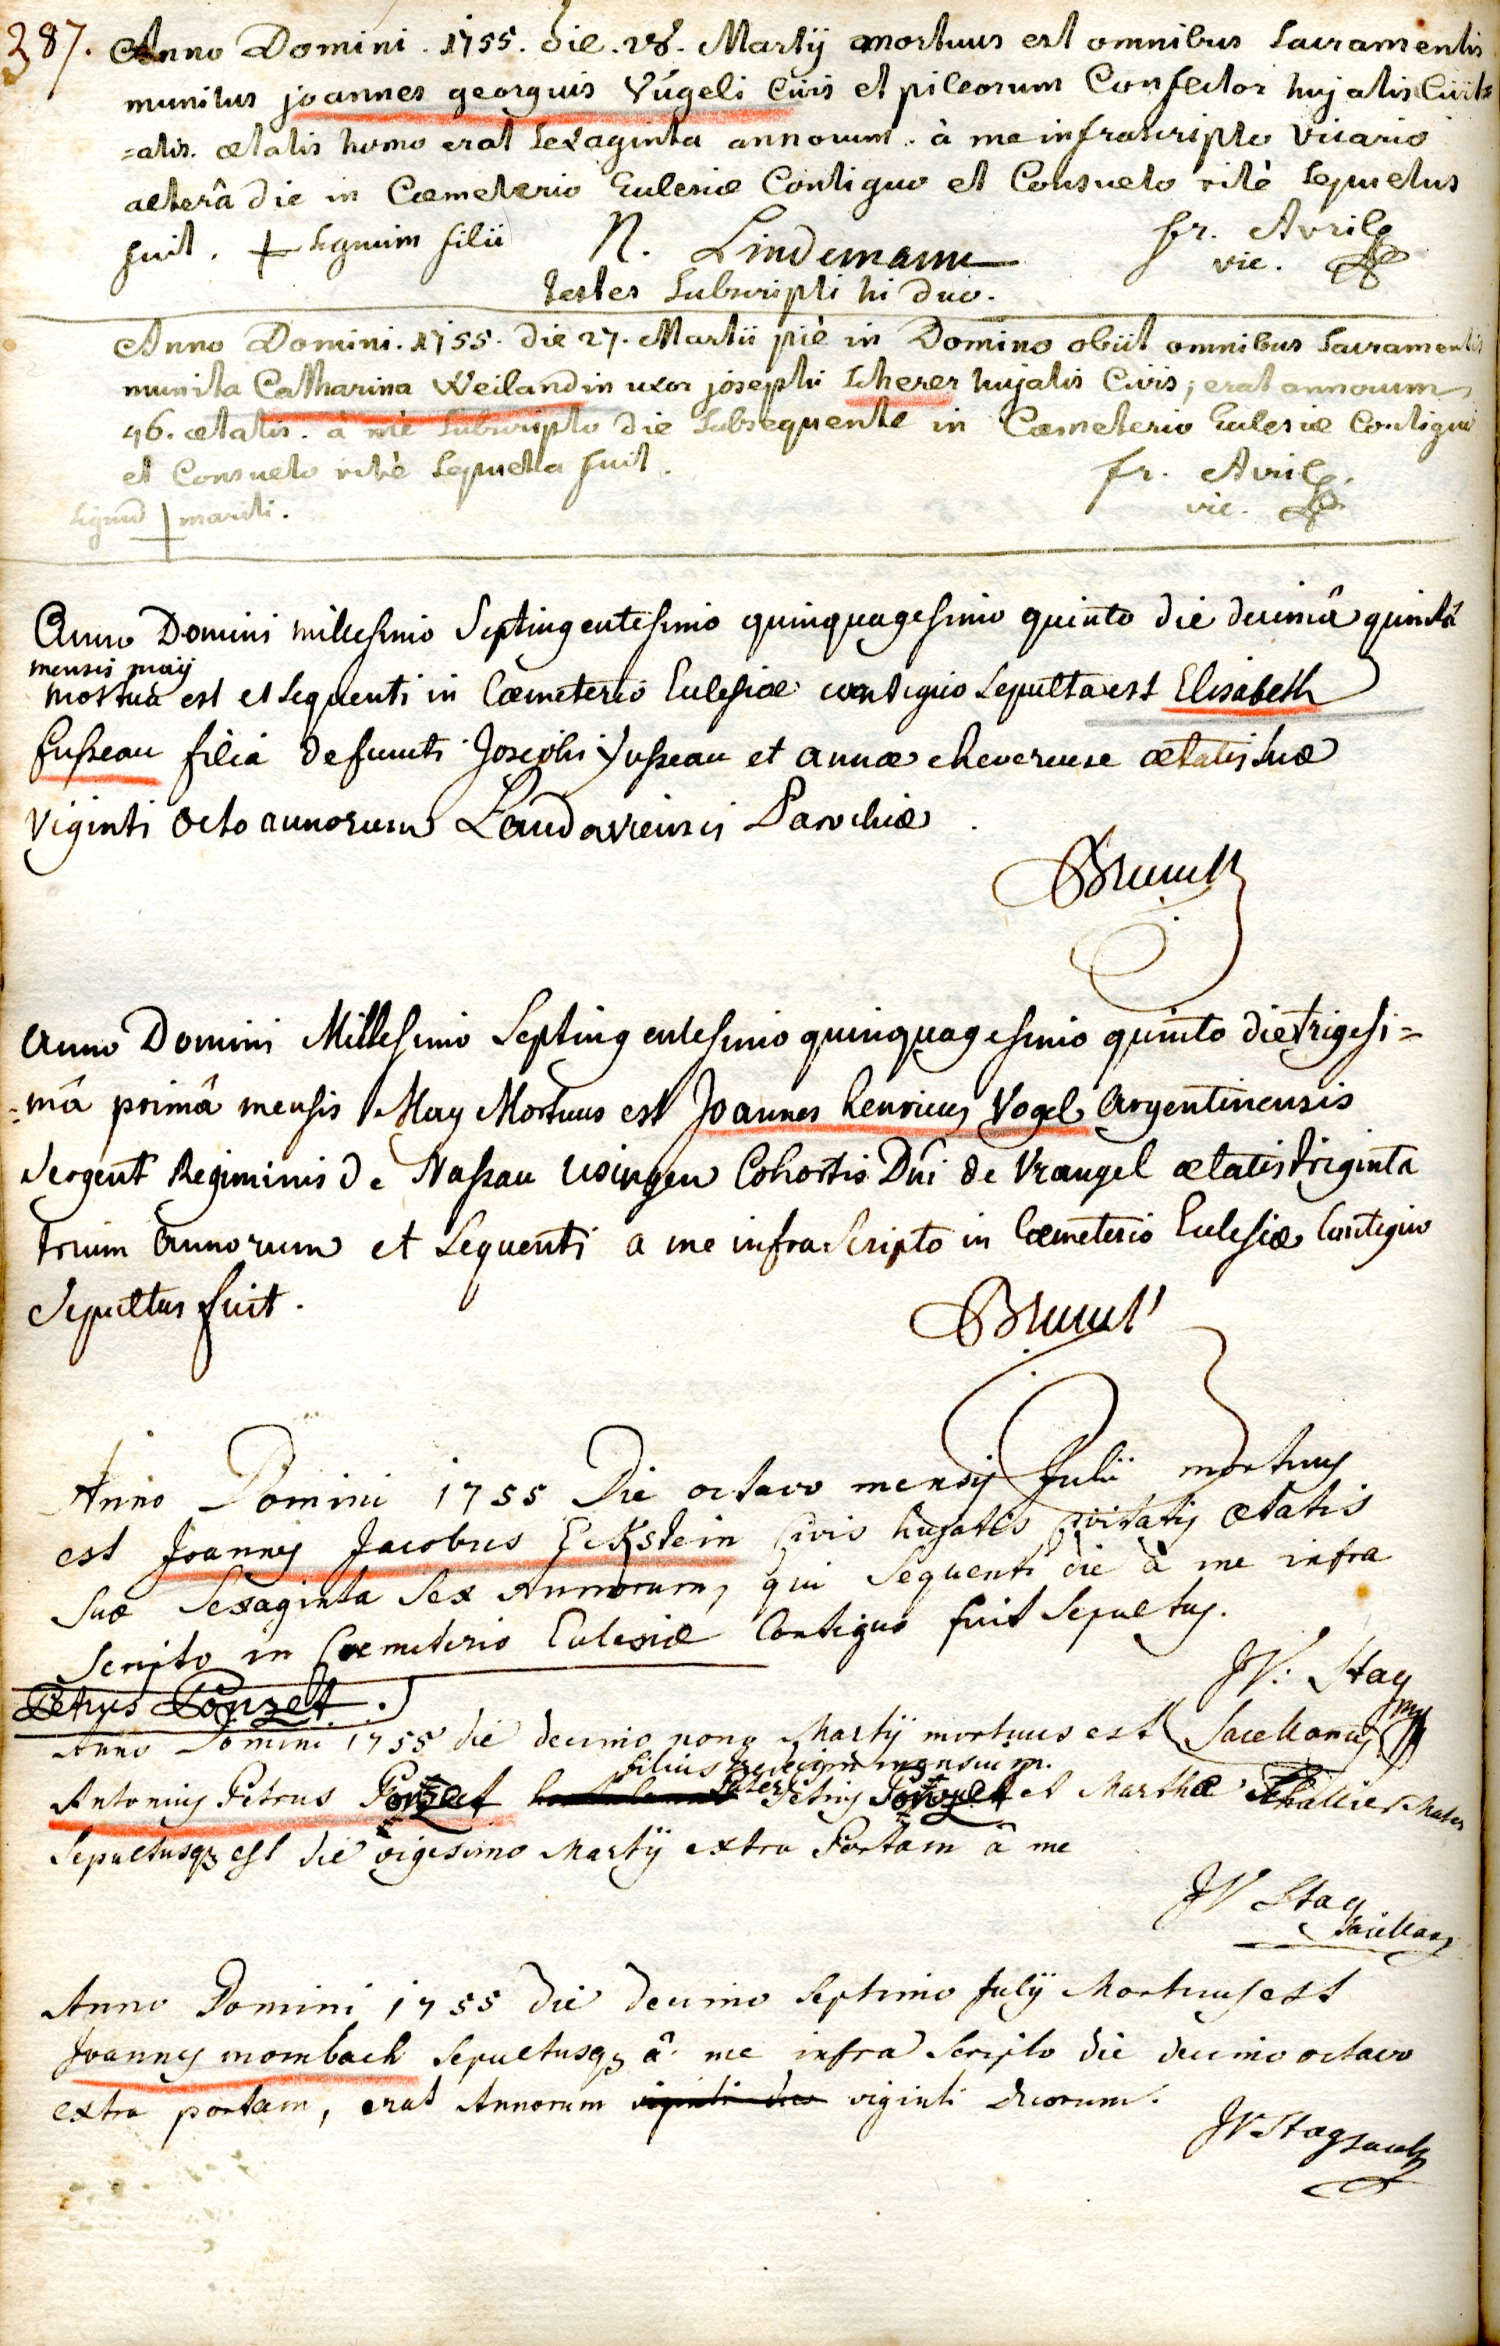 387. Anno Domini . 1755. die . 28. Martij mortuus est omnibus Sacramentis
munitus joannes georgius Vügeli Civis et pileorum Confector hujatis Civit=
=atis. ætatis homo erat sexaginta annorum . à me infrascripto vicario
alterâ die in Cœmeterio Eclesiæ Contiguo et Consueto ritè sepultus
fuit . + signum filii N. Lindemann fr. Avril
vic.
testes subscripti hi duo.
Anno Domini. 1755. die 27. Martii piè in Domino obiit omnibus Sacramentis
munita Catharina Weilandin uxor josephi Scherer hujatis Civis, erat annorum
46. ætatis . à me subscripto die subsequente in Cœmeterio Eclesiæ Contiguo
et Consueto ritè sepulta fuit . fr. Avril.
signum + mariti. vic.
Anno Domini millesimo Septingentesimo quinquagesimo quinto die decimâ quintâ
mensis maij
mortua est et sequenti in Cœmeterio Eclesiæ contiguo sepulta est Elisabeth
fusseau filia defuncti Josephi fusseau et annæ chevereuse ætatis suæ
viginti octo annorum Landaviensis Parochiæ .
Brunck
Anno Domini Millesimo Septingentesimo quinquagesimo quinto die trigesi=
=mâ primâ mensis May Mortuus est Joannes henricus Vogel Argentinensis
Sergent Regiminis de Nassau Usingen Cohortis Dni de Vrangel ætatis triginta
trium annorum et sequenti a me infra Scripto in Cœmeterio Eclesiæ Contiguo
Sepultus fuit . Brunck
Anno Domini 1755 Die octavo mensis Julii mortuus
est Joannes Jacobus Eckstein Civis hujatis Civitatis ætatis
suæ sexaginta sex Annorum, qui sequenti die à me infra
Scripto in Cœmeterio Eclesiæ Contiguo fuit sepultus.
JV: Stag
Petrus Ponzet . Sacellanus
Anno Domini 1755 die decimo nono Martij mortuus est
filius tredecim mensium.
Antonius Petrus Ponzet Pater Petrus Ponzet et Marthæ Challier Mater
Sepultusq; est die vigesimo Martij extra Portam à me
JV Stag
Sacellanus
Anno Domini 1755 die decimo septimo Julij Mortuus est
Joannes mombach sepultusq; à me infra Scripto die decimo octavo
extra portam, erat Annorum viginti duo viginti duorum.
JV Stag sacell